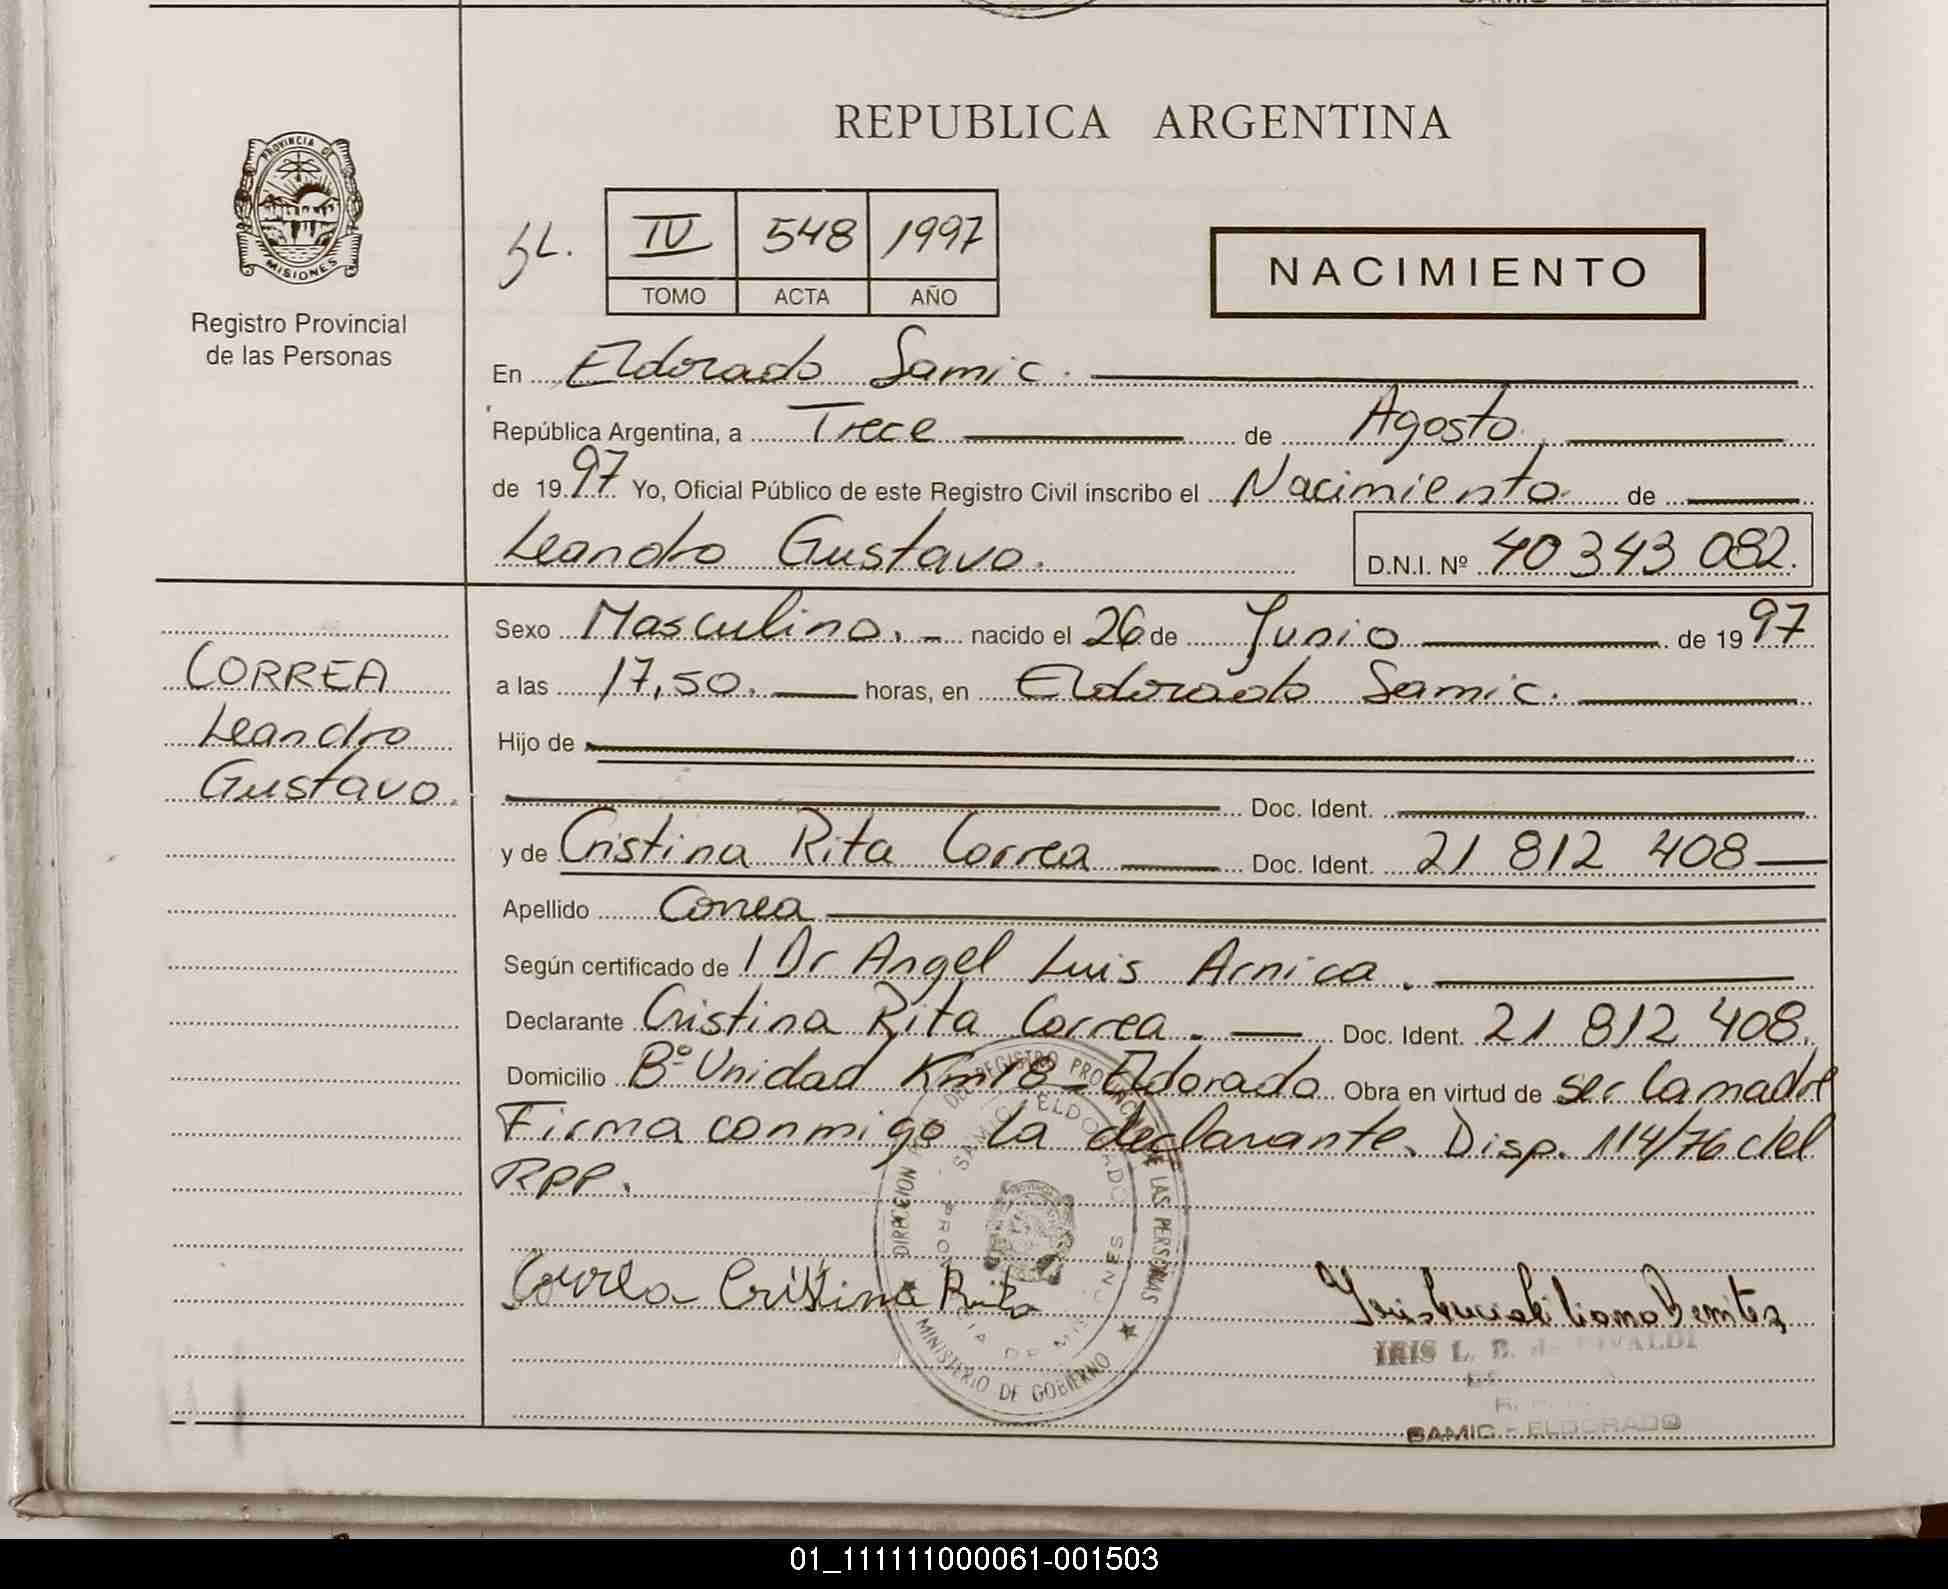 REPUBLICA ARGENTINA
PROVINCIA DE
MISIONES
Registro Provincial
de las Personas
IV 548 1997
TOMO ACTA AÑO
NACIMIENTO
En Eldorado Samic.
República Argentina, a Trece de Agosto
de 1997 Yo, Oficial Público de este Registro Civil inscribo el Nacimiento de
Leandro Gustavo. D.N.I. Nº 40 343 082.
CORREA
Leandro
Gustavo.
Sexo Masculino. nacido el 26 de Junio de 1997
a las 17,50. horas, en Eldorado Samic.
Hijo de
Doc. Ident.
y de Cristina Rita Correa Doc. Ident. 21 812 408
Apellido Correa
Según certificado de 1 Dr Angel Luis Arnica.
Declarante Cristina Rita Correa. Doc. Ident. 21 812 408.
Domicilio Bº Unidad Km 18 - Eldorado Obra en virtud de ser la madre
Firma conmigo la declarante. Disp. 114/76 del
RPP.
DIRECCION DEL REGISTRO PROVINCIAL DE LAS PERSONAS
MINISTERIO DE GOBIERNO
SAMIC ELDORADO
PROVINCIA DE
Correa Cristina Rita
Benitez
IRIS L. B. de
SAMIC - ELDORADO
01_111111000061-001503